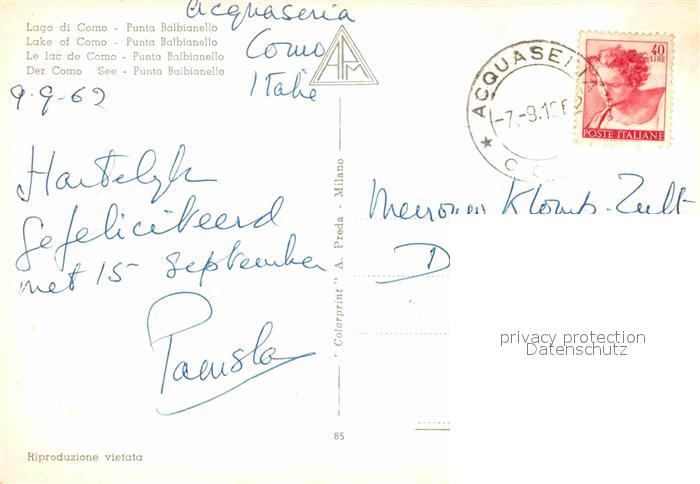 Lago di Como - Punta Balbianello
Lake of Como - Punta Balbianello
Le lac de Como - Punta Balbianello
Der Como See - Punta Balbianello
Acquaseria
Como
Italie
APM
9-9-62
Hartelyk
gefeliciteerd
met 15 September
ACQUASERIA
-7.-9.1962
40
LIRE
POSTE ITALIANE
Mevrouw Klomb-Zult
D
privacy protection
Datenschutz
"Colorprint" A. Preda - Milano
85
Riproduzione vietata